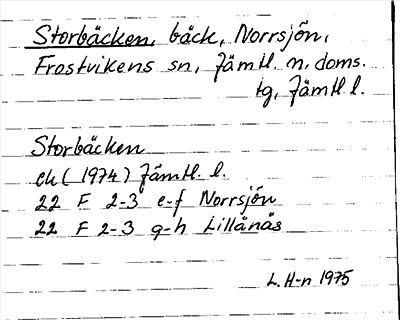 Storbäcken, bäck, Norrsjön,
Frostvikens sn, Jämtl. n. doms.
tg, Jämtl l.
Storbäcken
ek (1974) Jämtl. l.
22 F 2-3 e-f Norrsjön
22 F 2-3 g-h Lillånäs
L. H-n 1975